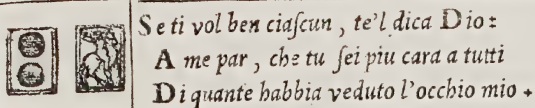 Se ti vol ben ciaſcun, te'l dica Dio:
A me par, che tu ſei piu cara a tutti
Di quante habbia veduto l'occhio mio.